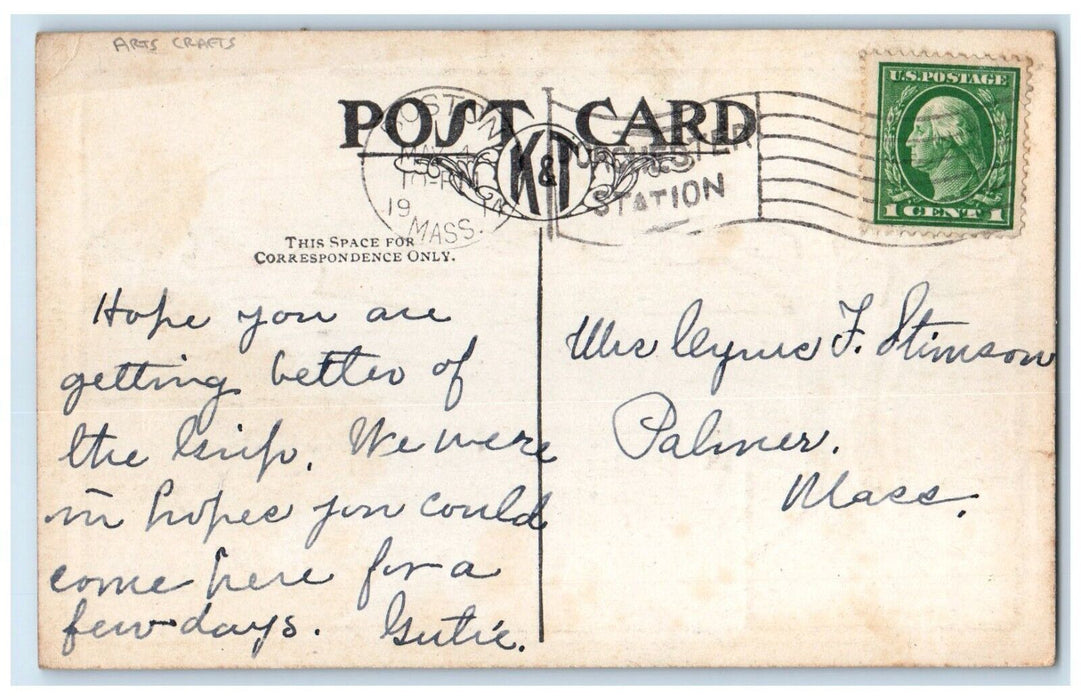 ARTS CRAFTS
POST CARD
K&T
BOSTON
10-PM
19
MASS.
DORCHESTER
STATION
U.S. POSTAGE
1 CENT 1
THIS SPACE FOR
CORRESPONDENCE ONLY.
Hope you are
getting better of
the Grip. We were
in hopes you could
come here for a
few days. Gutie.
Mrs Cyrus F. Stimson
Palmer.
Mass.